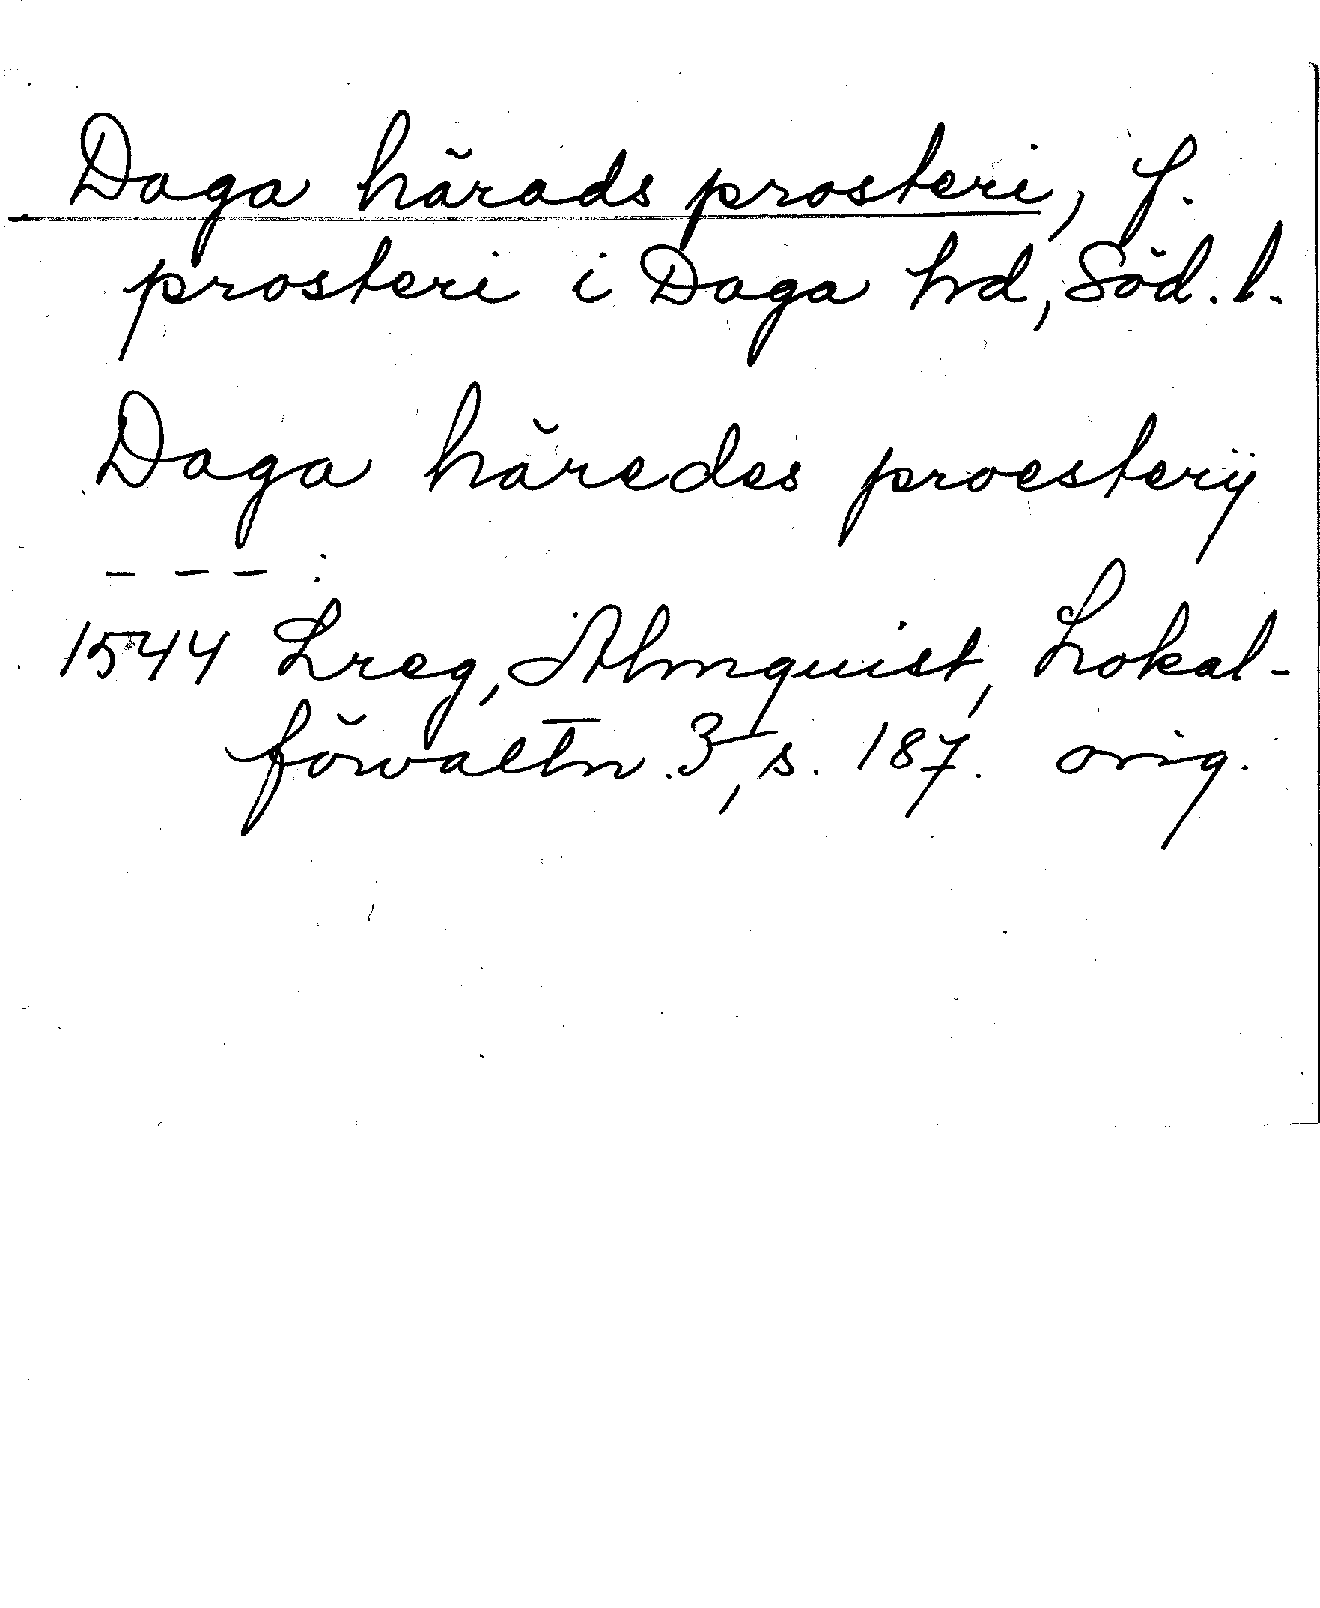 Daga härads prosteri, f.
prosteri i Daga hd, Söd. l.
Daga häredes proesterij
- - - :
1544 Lreg, Almquist, Lokal-
förvaltn. 3, s. 187. orig.